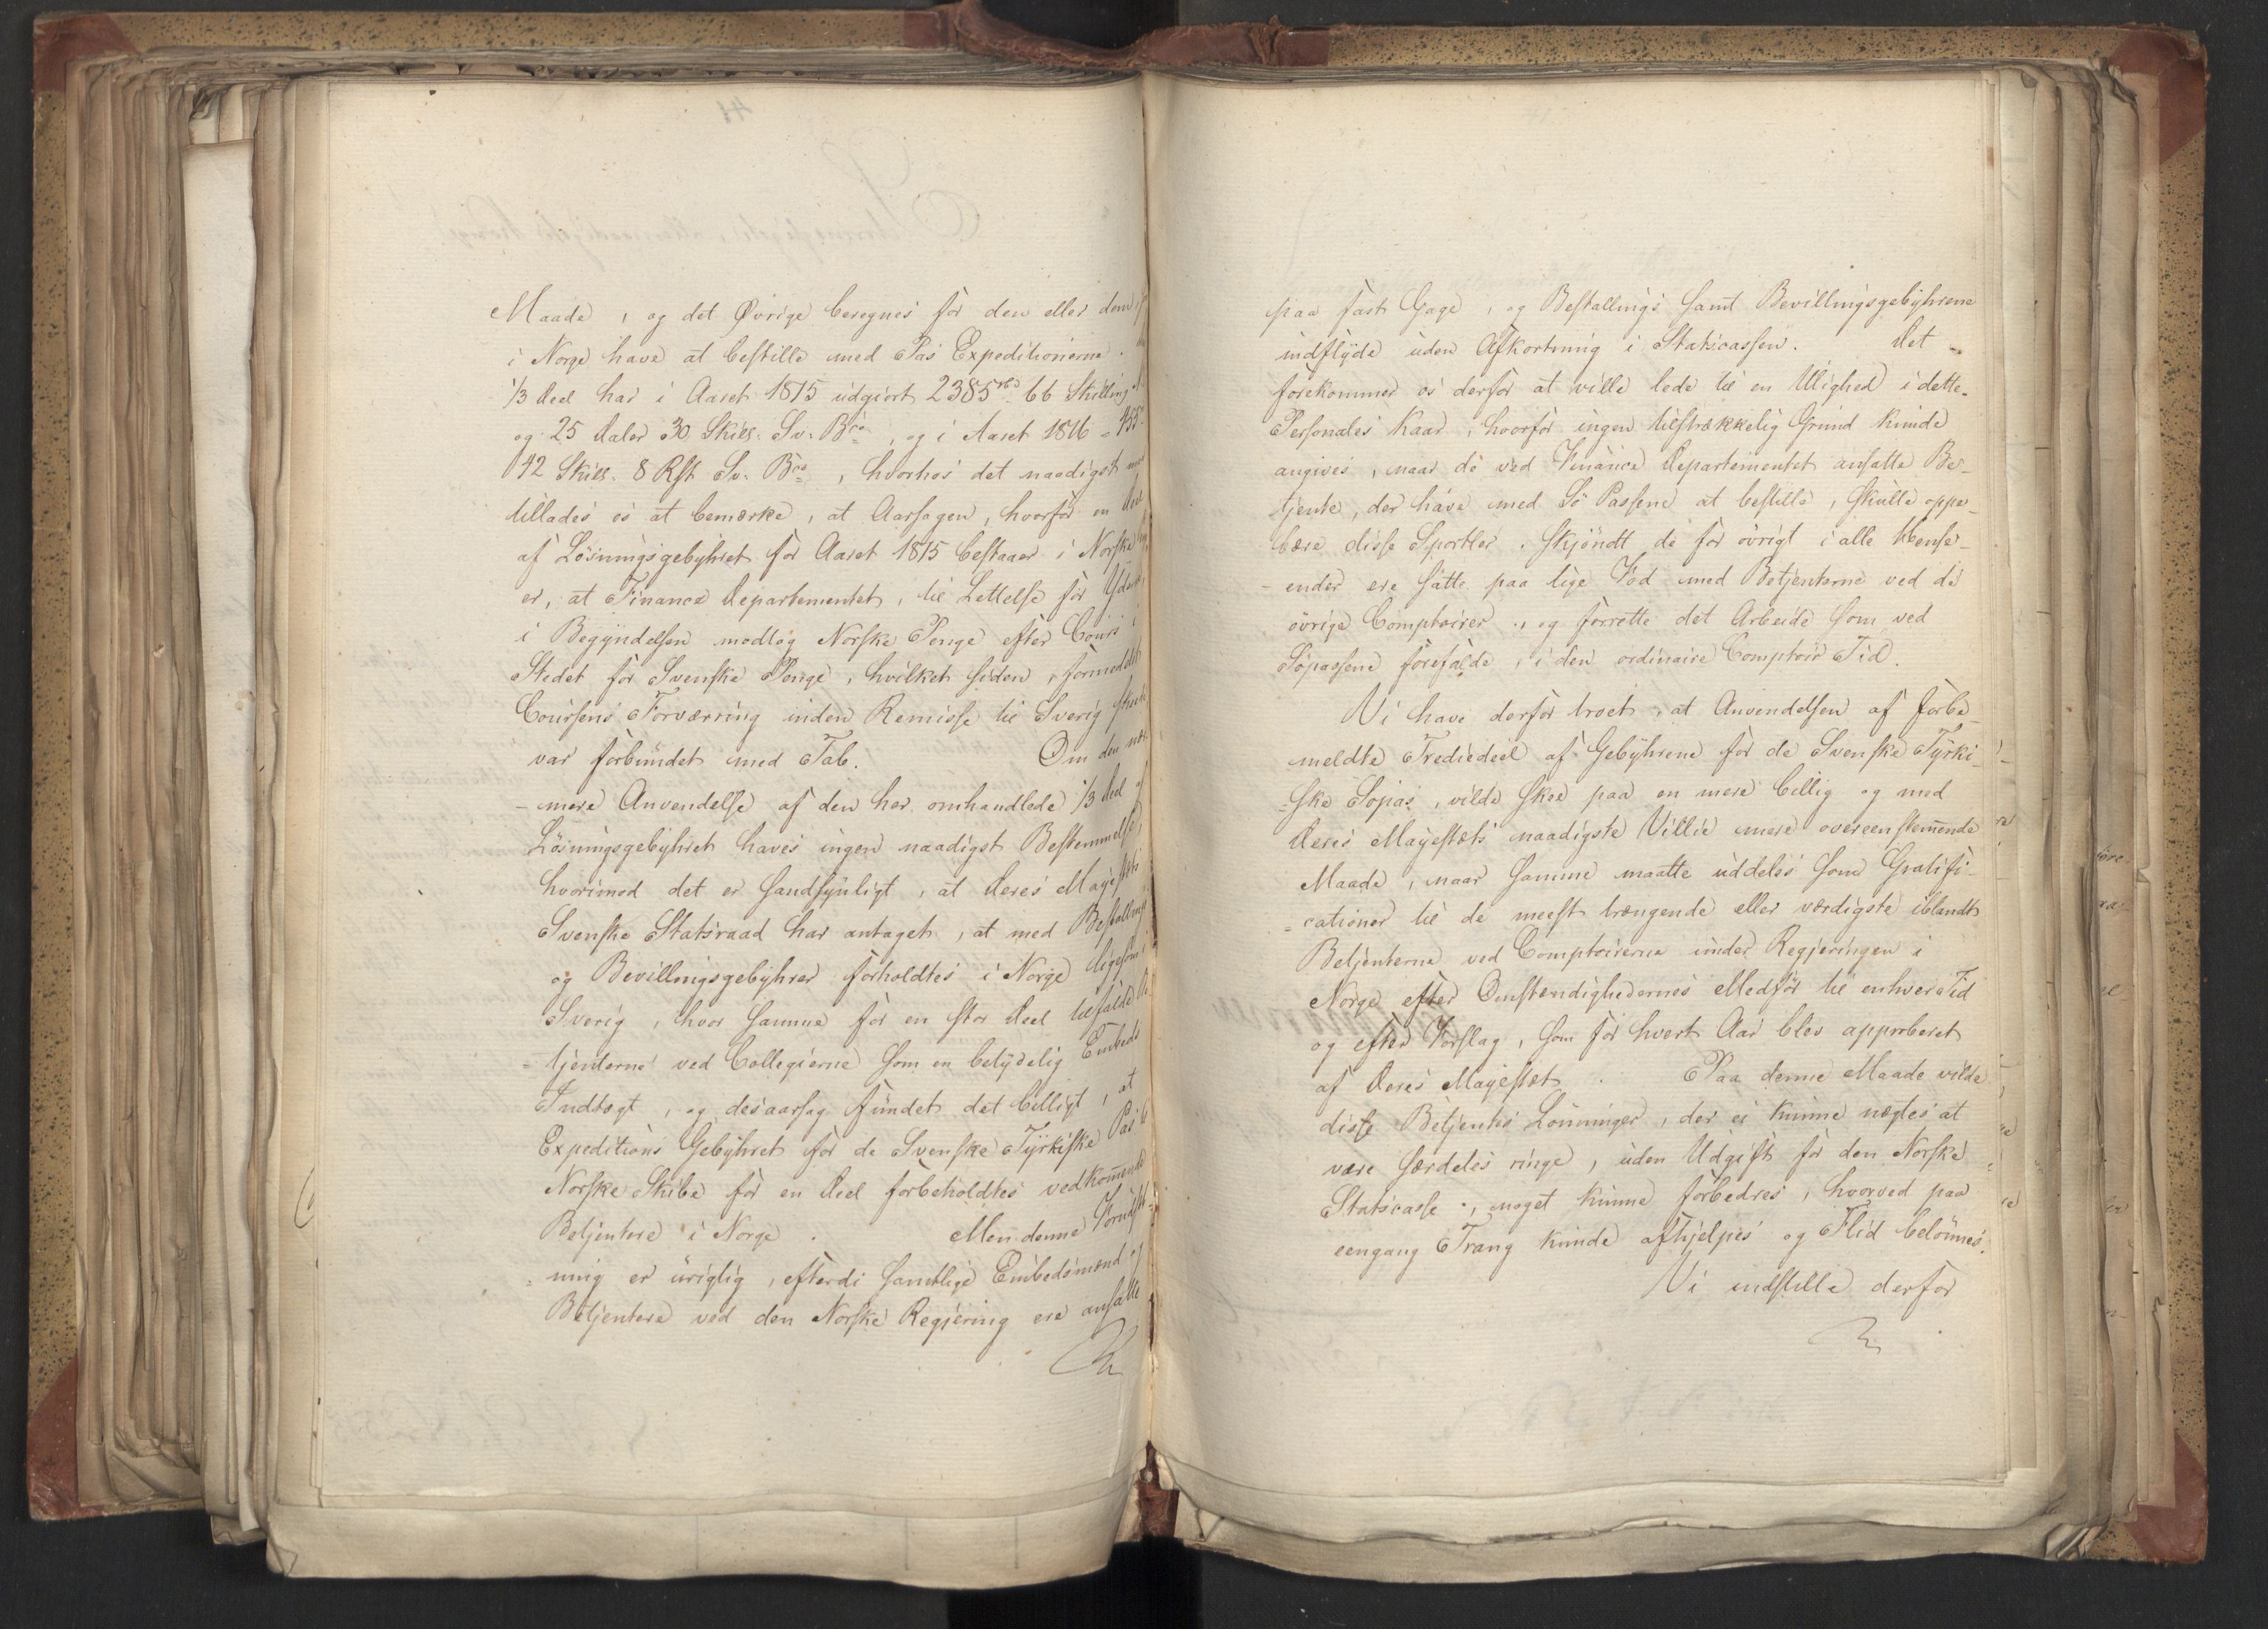 Maade, og det Øvrige beregnes for den eller dem
i Norge have at bestille med Pas Expeditionerne.
1/3 Deel har i Aaret 1815 udgiort 2385 rbd 66 Skilling
og 25 Daler 30 Skill. Sv. Bco, og i Aaret 1816 = 455
42 Skill. 8 Rst Sv. Bco, hvorhos det naadigst
tillades os at bemærke, at Aarsagen, hvorfor en Deel
af Løsningsgebyhret for Aaret 1815 bestaaer i Norske
er, at Finance Departementet, til Lettelse for
i Begyndelsen modtog Norske Penge efter Cours i
Stedet for Svenske Penge, hvilket siden, formedelst
Coursens Forværring inden Remisse til Sverig
var forbundet med Tab. Om den nær-
-mere Anvendelse af den her omhandlede 1/3 Deel af
Løsningsgebyhret haves ingen naadigst Bestemmelse,
hvorimod det er sandsynligt, at Deres Majestæts
Svenske Statsraad har antaget, at med Bestallings
og Bevillingsgebyhrer forholdtes i Norge ligesom i
Sverig, hvor samme for en stor Deel tilfalde Be-
-tjenterne ved Collegierne som en betydelig Embeds
Indtægt, og desaarsag fundet det billigt, at
Expeditions Gebyhret for de Svenske Tyrkiske Pas
Norske Skibe for en Deel forbeholdtes vedkommende
Betjentere i Norge. Men denne Forudsæt-
-ning er urigtig, efterdi samtlige Embedsmænd og
Betjentere ved den Norske Regjering ere ansatte
paa fast Gage, og Bestallings samt Bevillingsgebyhrene
indflyde uden Afkortning i Statscassen. Det
forekommer os derfor at ville lede til en Ulighed i dette
Personales Kaar, hvorfor ingen tilstrækkelig Grund kunde
angives, naar de ved Finance Departementet ansatte Be-
tjente, der have med Sö Passene at bestille, skulle oppe-
bære disse Sportler, skjöndt de for övrigt i alle Hense-
-ender ere satte paa lige Fod med Betjenterne ved de
övrige Comptoirer, og forrette det Arbeide som ved
Söpassene forefalde, i den ordinaire Comptoir Tid.
Vi have derfor troet, at Anvendelsen af forbe-
meldte Trediedeel af Gebyhrene for de Svenske Tyrki-
-ske Söpas, vilde skee paa en mere billig og med
Deres Majestæts naadigste Villie mere overeenstemmende
Maade, naar samme maatte uddeles som Gratifi-
-cationer til de meest trængende eller værdigste iblandt
Betjenterne ved Comptoirerne under Regjeringen i
Norge efter Omstændighedernes Medför til enhver Tid
og efter Forslag, som for hvert Aar blev approberet
af Deres Majestæt. Paa denne Maade vilde
disse Betjentes Lönninger, der ei kunne nægtes at
være særdeles ringe, uden Udgift for den Norske
Statscasse, noget kunne forbedres, hvorved paa
eengang Trang kunde afhjelpes og Flid belönnes.
Vi indstille derfor